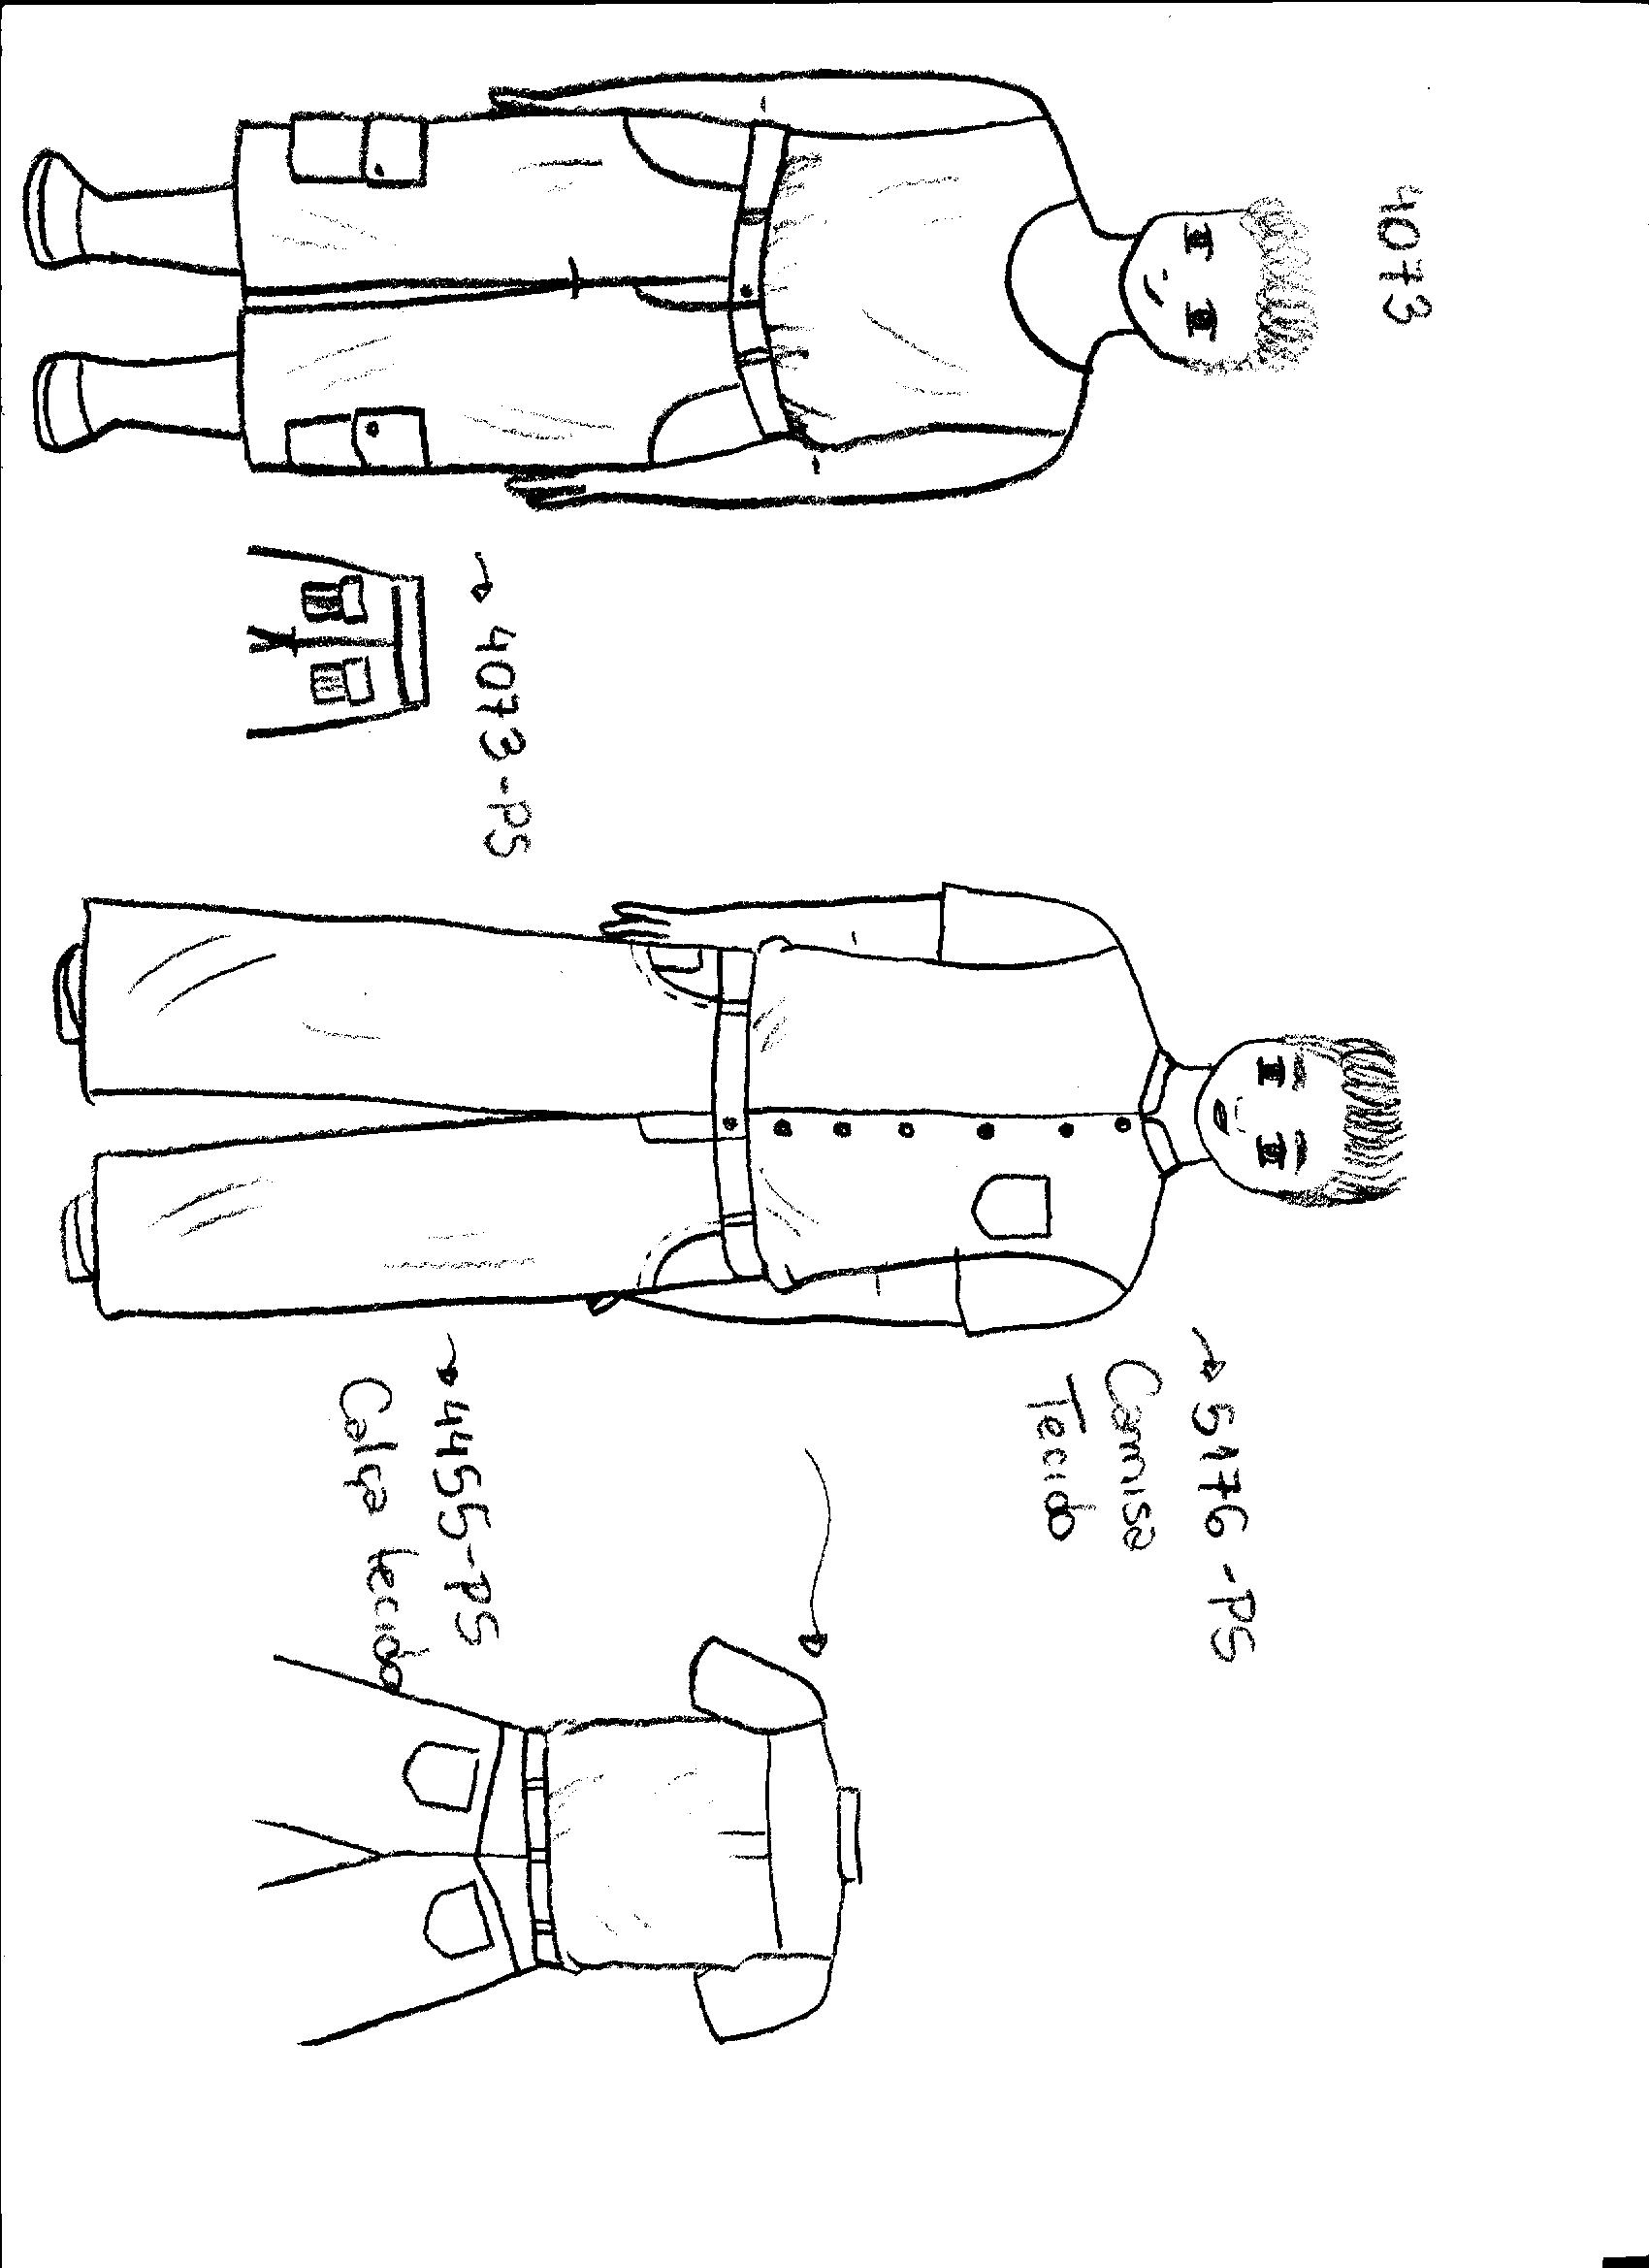 4073
→ 4073-PS
→ 5176-PS
Camisa
Tecido
→ 4455-PS
Calça tecido